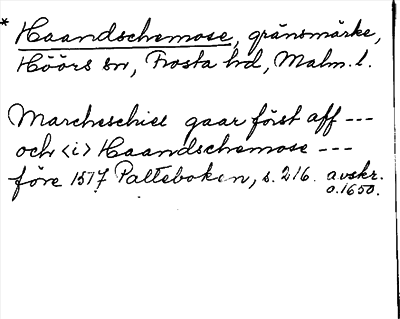 * Haandschemose, gränsmärke,
Höörs sn, Frosta hd, Malm. l.
Marcheschiel gaar först aff ---
och <i> Haandschemose ---
före 1517 Palteboken, s. 216. avskr.
o. 1650.